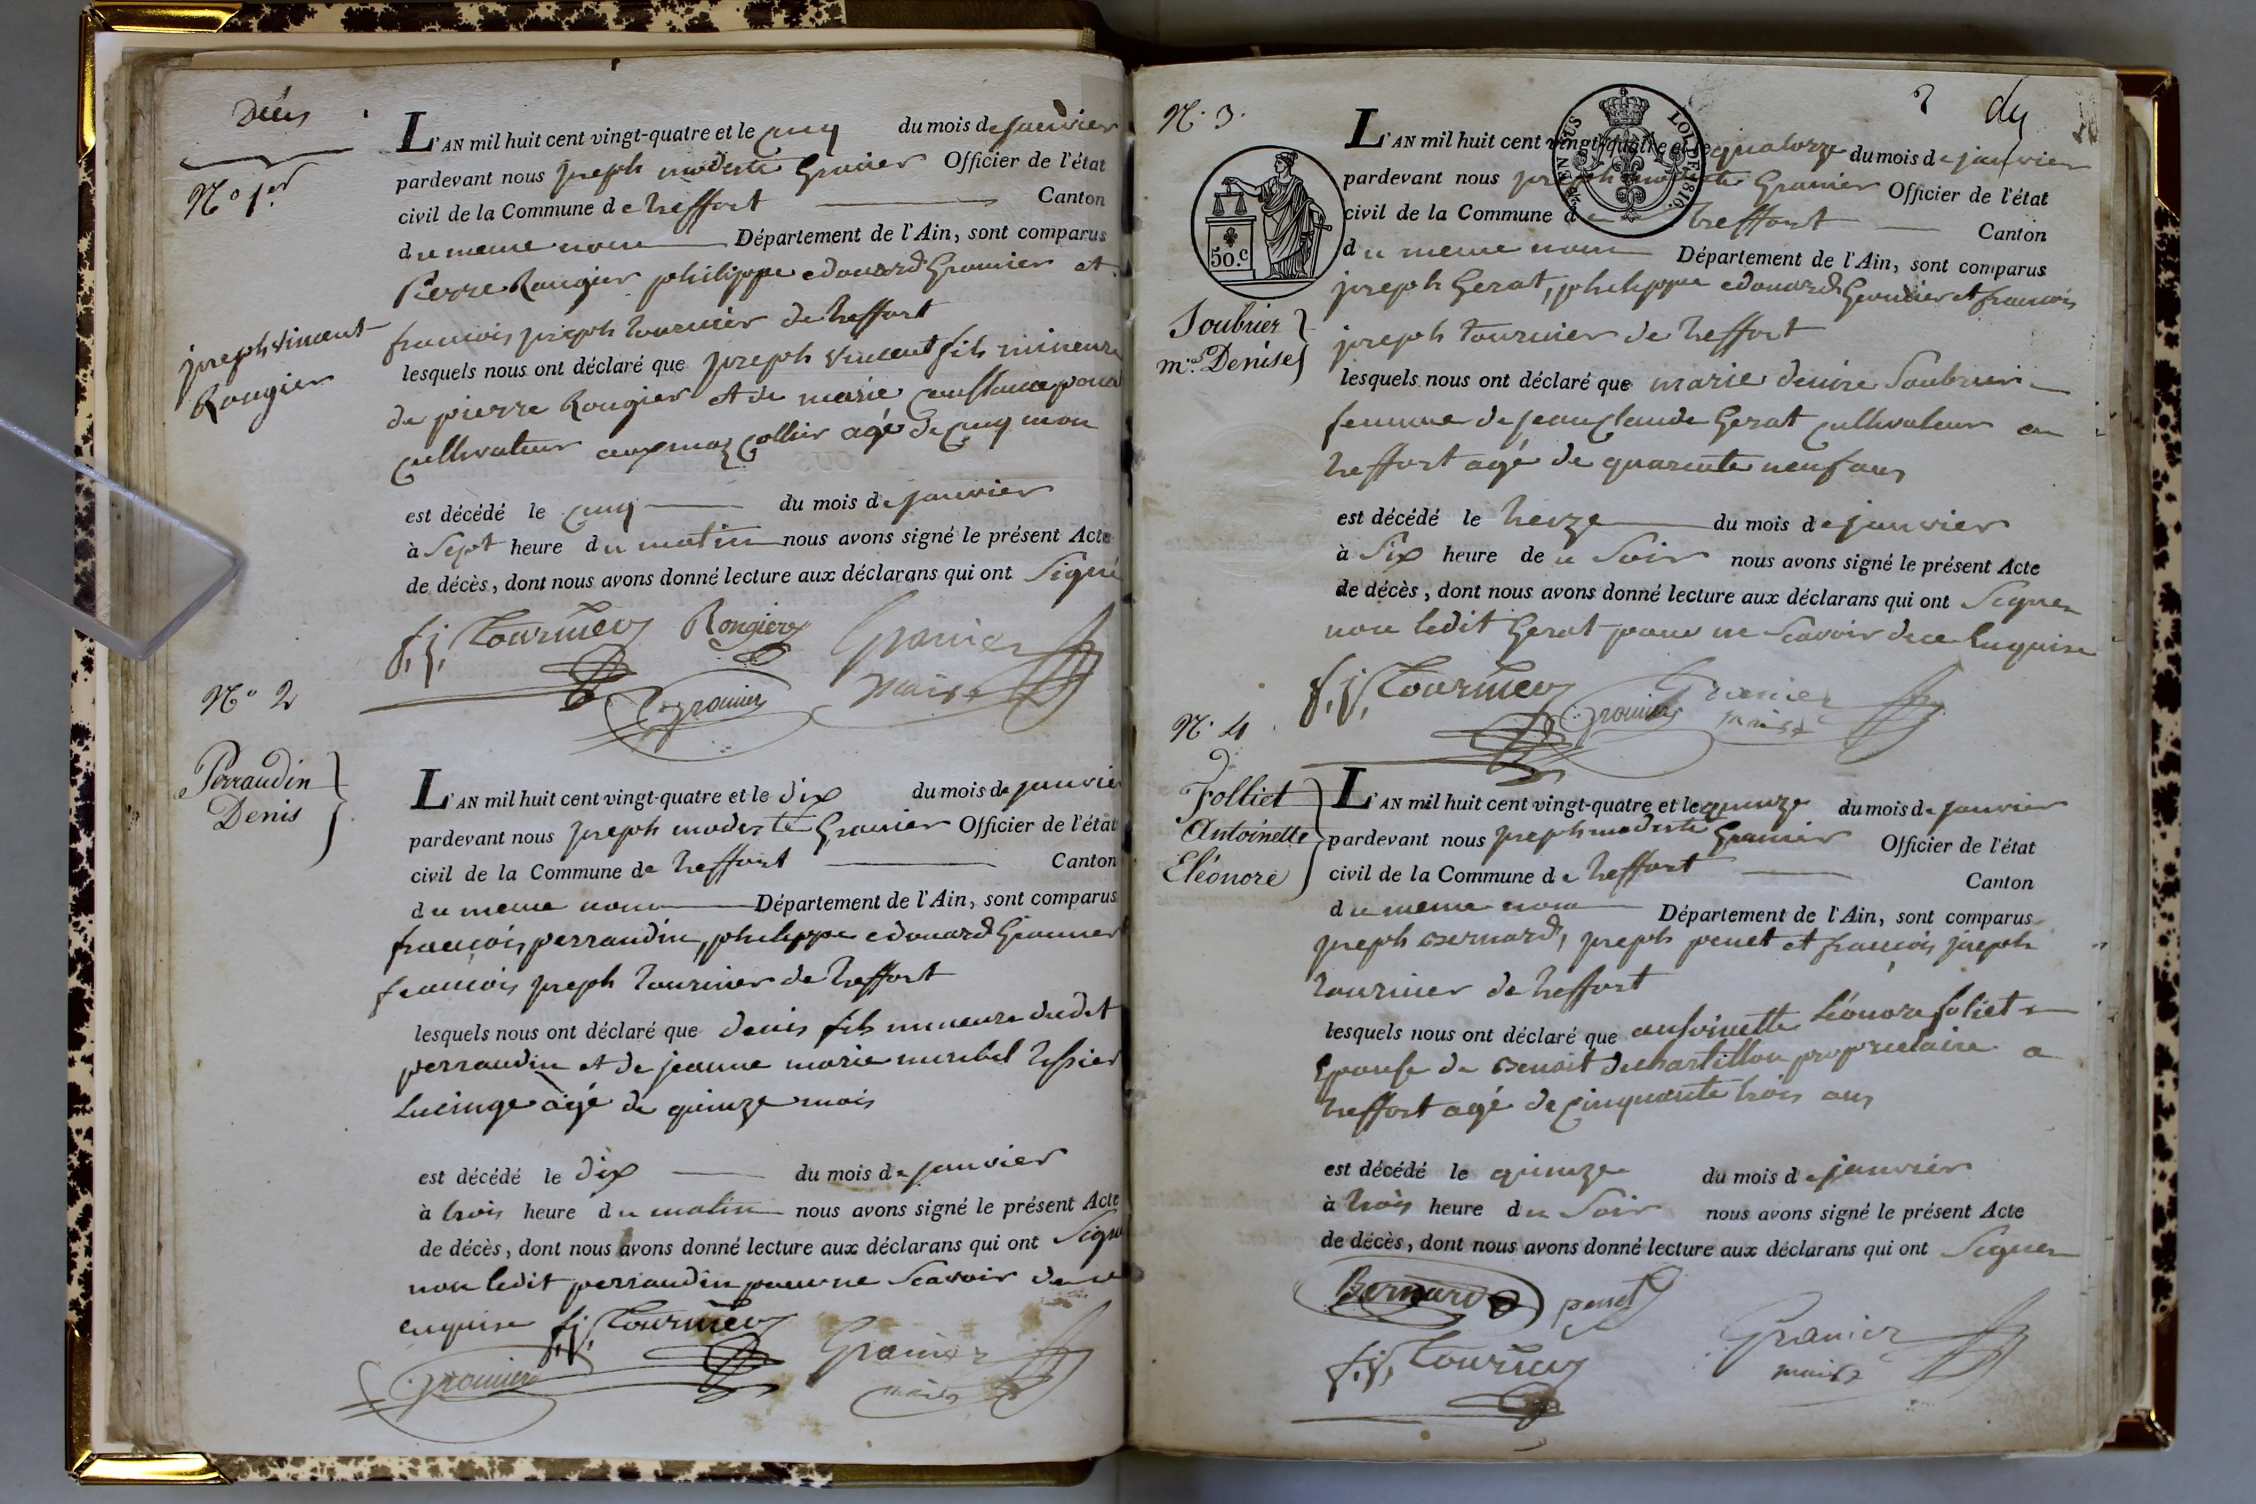 Décès
N.º 1.er
joseph vincent
Rougier
L'AN mil huit cent vingt-quatre et le cinq du mois de janvier
pardevant nous joseph modeste Granier Officier de l'état
civil de la Commune de treffort Canton
du meme nom Département de l'Ain, sont comparus
Pierre Rougier philippe edouard Granier et
francois joseph tournier de treffort
lesquels nous ont déclaré que joseph vincent fils mineure
de pierre Rougier et de marie constance
cultivateur aux maz Collin agé de cinq mois
est décédé le cinq du mois de janvier
à Sept heure du matin nous avons signé le présent Acte
de décès, dont nous avons donné lecture aux déclarans qui ont Signé
f. j. Tournier Rougier Granier
Granier maire
N.º 2
Perraudin
Denis
L'AN mil huit cent vingt-quatre et le dix du mois de janvier
pardevant nous joseph modeste Granier Officier de l'état
civil de la Commune de treffort Canton
du meme nom Département de l'Ain, sont comparus
françois perraudin, philippe edouard Granier et
francois joseph tournier de treffort
lesquels nous ont déclaré que denis fils mineure dudit
perraudin et de jeanne marie muribel
Lucinge agé de quinze mois
est décédé le dix du mois de janvier
à trois heure du matin nous avons signé le présent Acte
de décès, dont nous avons donné lecture aux déclarans qui ont Signé
non ledit perraudin pour ne Scavoir de ce
enquise f. j. Tournier Granier
Granier maire
2
N.º 3.
TIMBRE EN SUS LOI DE 1816.
50.c
Soubrier
m.ie Denise
L'AN mil huit cent vingt-quatre et le quatorze du mois de janvier
pardevant nous joseph modeste Granier Officier de l'état
civil de la Commune de treffort Canton
du meme nom Département de l'Ain, sont comparus
joseph Gerat, philippe edouard Granier et francois
joseph tournier de treffort
lesquels nous ont déclaré que marie denise Soubrier
femme de jean Claude Gerat cultivateur en
treffort agé de quarente neuf ans
est décédé le treize du mois de janvier
à Six heure de u Soir nous avons signé le présent Acte
de décès, dont nous avons donné lecture aux déclarans qui ont Signer
non ledit Gerat pour ne Scavoir de ce Enquise
f. j. Tournier Granier Granier
maire
N.º 4
Folliet
Antoinette
Eléonore
L'AN mil huit cent vingt-quatre et le quinze du mois de janvier
pardevant nous joseph modeste Granier Officier de l'état
civil de la Commune de treffort Canton
du meme nom Département de l'Ain, sont comparus
joseph Bernard, joseph penet et francois joseph
tournier de treffort
lesquels nous ont déclaré que antoinette Léonore foliet
Epouse de Benoit dechastillon proprietaire a
treffort agé de cinquante trois ans
est décédé le quinze du mois de janvier
à trois heure du Soir nous avons signé le présent Acte
de décès, dont nous avons donné lecture aux déclarans qui ont Signer
Bernard penet
f. j. Tournier Granier
maire